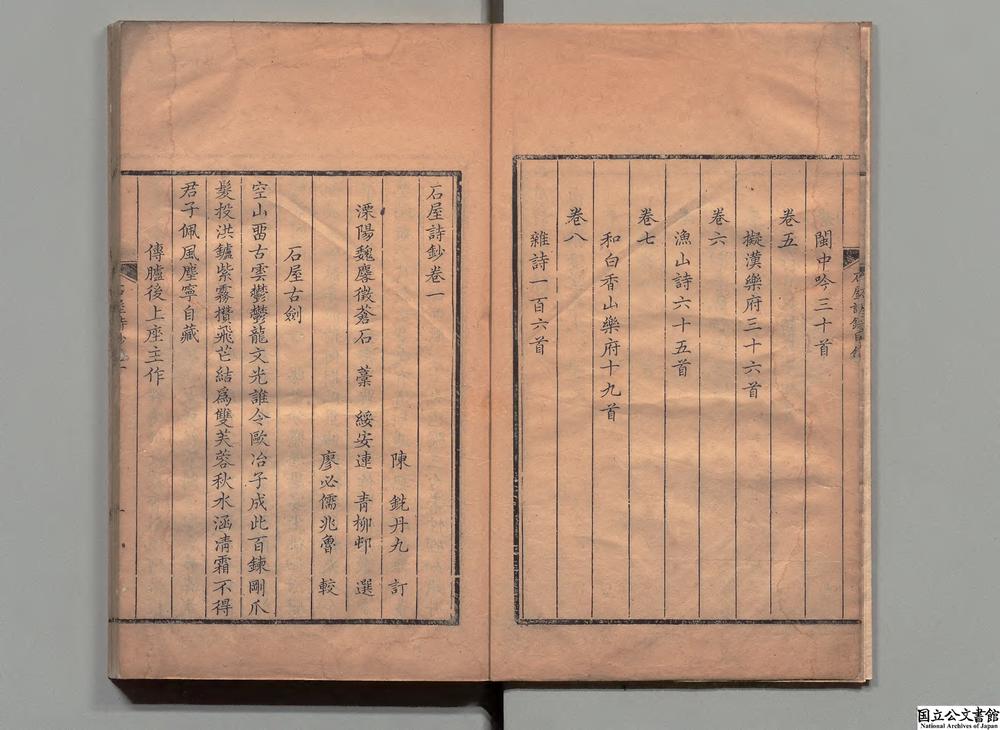 石屋詩鈔目錄
閩中吟三十首
卷五
擬漢樂府三十六首
卷六
漁山詩六十五首
卷七
和白香山樂府十九首
卷八
雜詩一百六首
石屋詩鈔卷一
陳 銑丹九 訂
溧陽魏麐徵蒼石 藁 綏安連 青柳邨 選
廖必儒兆魯 較
石屋古劍
空山畱古雲鬱鬱龍文光誰令歐冶子成此百鍊剛爪
髮投洪鑪紫霧攢飛芒結爲雙芙蓉秋水涵淸霜不得
君子佩風塵寧自藏
傳臚後上座主作
国立公文書館
National Archives of Japan